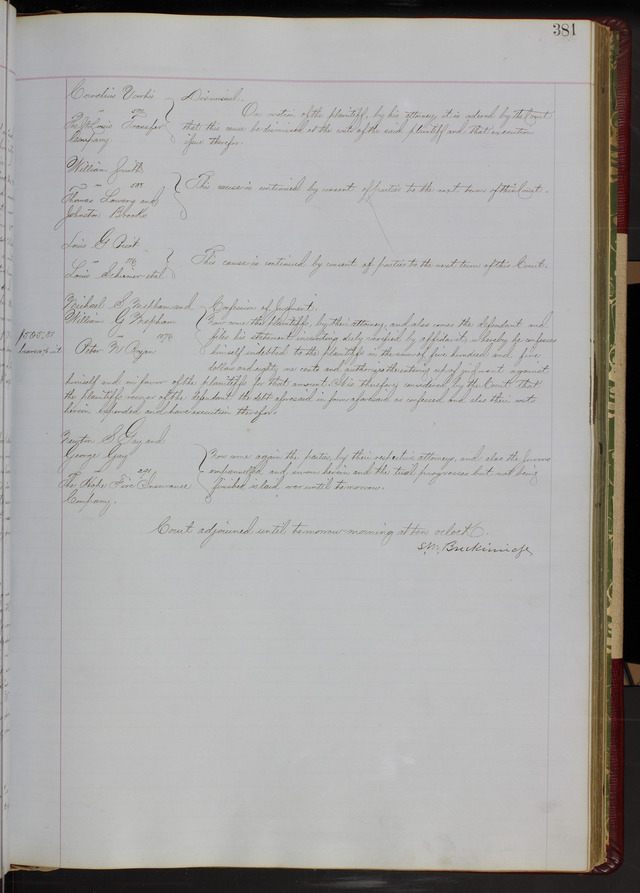 381
Cornelius Voorhis Dismissal.
On motion of the plaintiff, by his attorney, it is ordered by the Court
The St Louis Transfer that this cause be dismissed at the cost of the said plaintiff and that execution
Company issue therefor.
William Smith
vs This cause is continued by consent of parties to the next term of this Court.
Thomas Lowery and
Johnston Brooks
Louis G.
vs This cause is continued by consent of parties to the next term of this Court.
Louis et al
Michael S. Mepham and Confession of Judgment.
William G. Mepham Now come the plaintiffs, by their attorney, and also comes the defendant and
1076 files his statement in writing duly verified by affidavit, whereby he confesses
Peter himself indebted to the plaintiffs in the sum of five hundred and five
dollars and eighty cents and authorizes the entering up of judgment against
himself and in favor of the plaintiffs for that amount. It is therefore considered by the Court that
the plaintiffs recover of the defendant the debt aforesaid in form aforesaid as confessed and also their costs
herein expended and have execution therefor.
Newton S. Gay and
George Gay Now come again the parties by their respective attorneys, and also the jurors
vs empannelled and sworn herein and the trial progresses but not being
The Fire Insurance finished is laid over until tomorrow.
Company.
Court adjourned until tomorrow morning at ten oclock.
S. M. Breckinridge